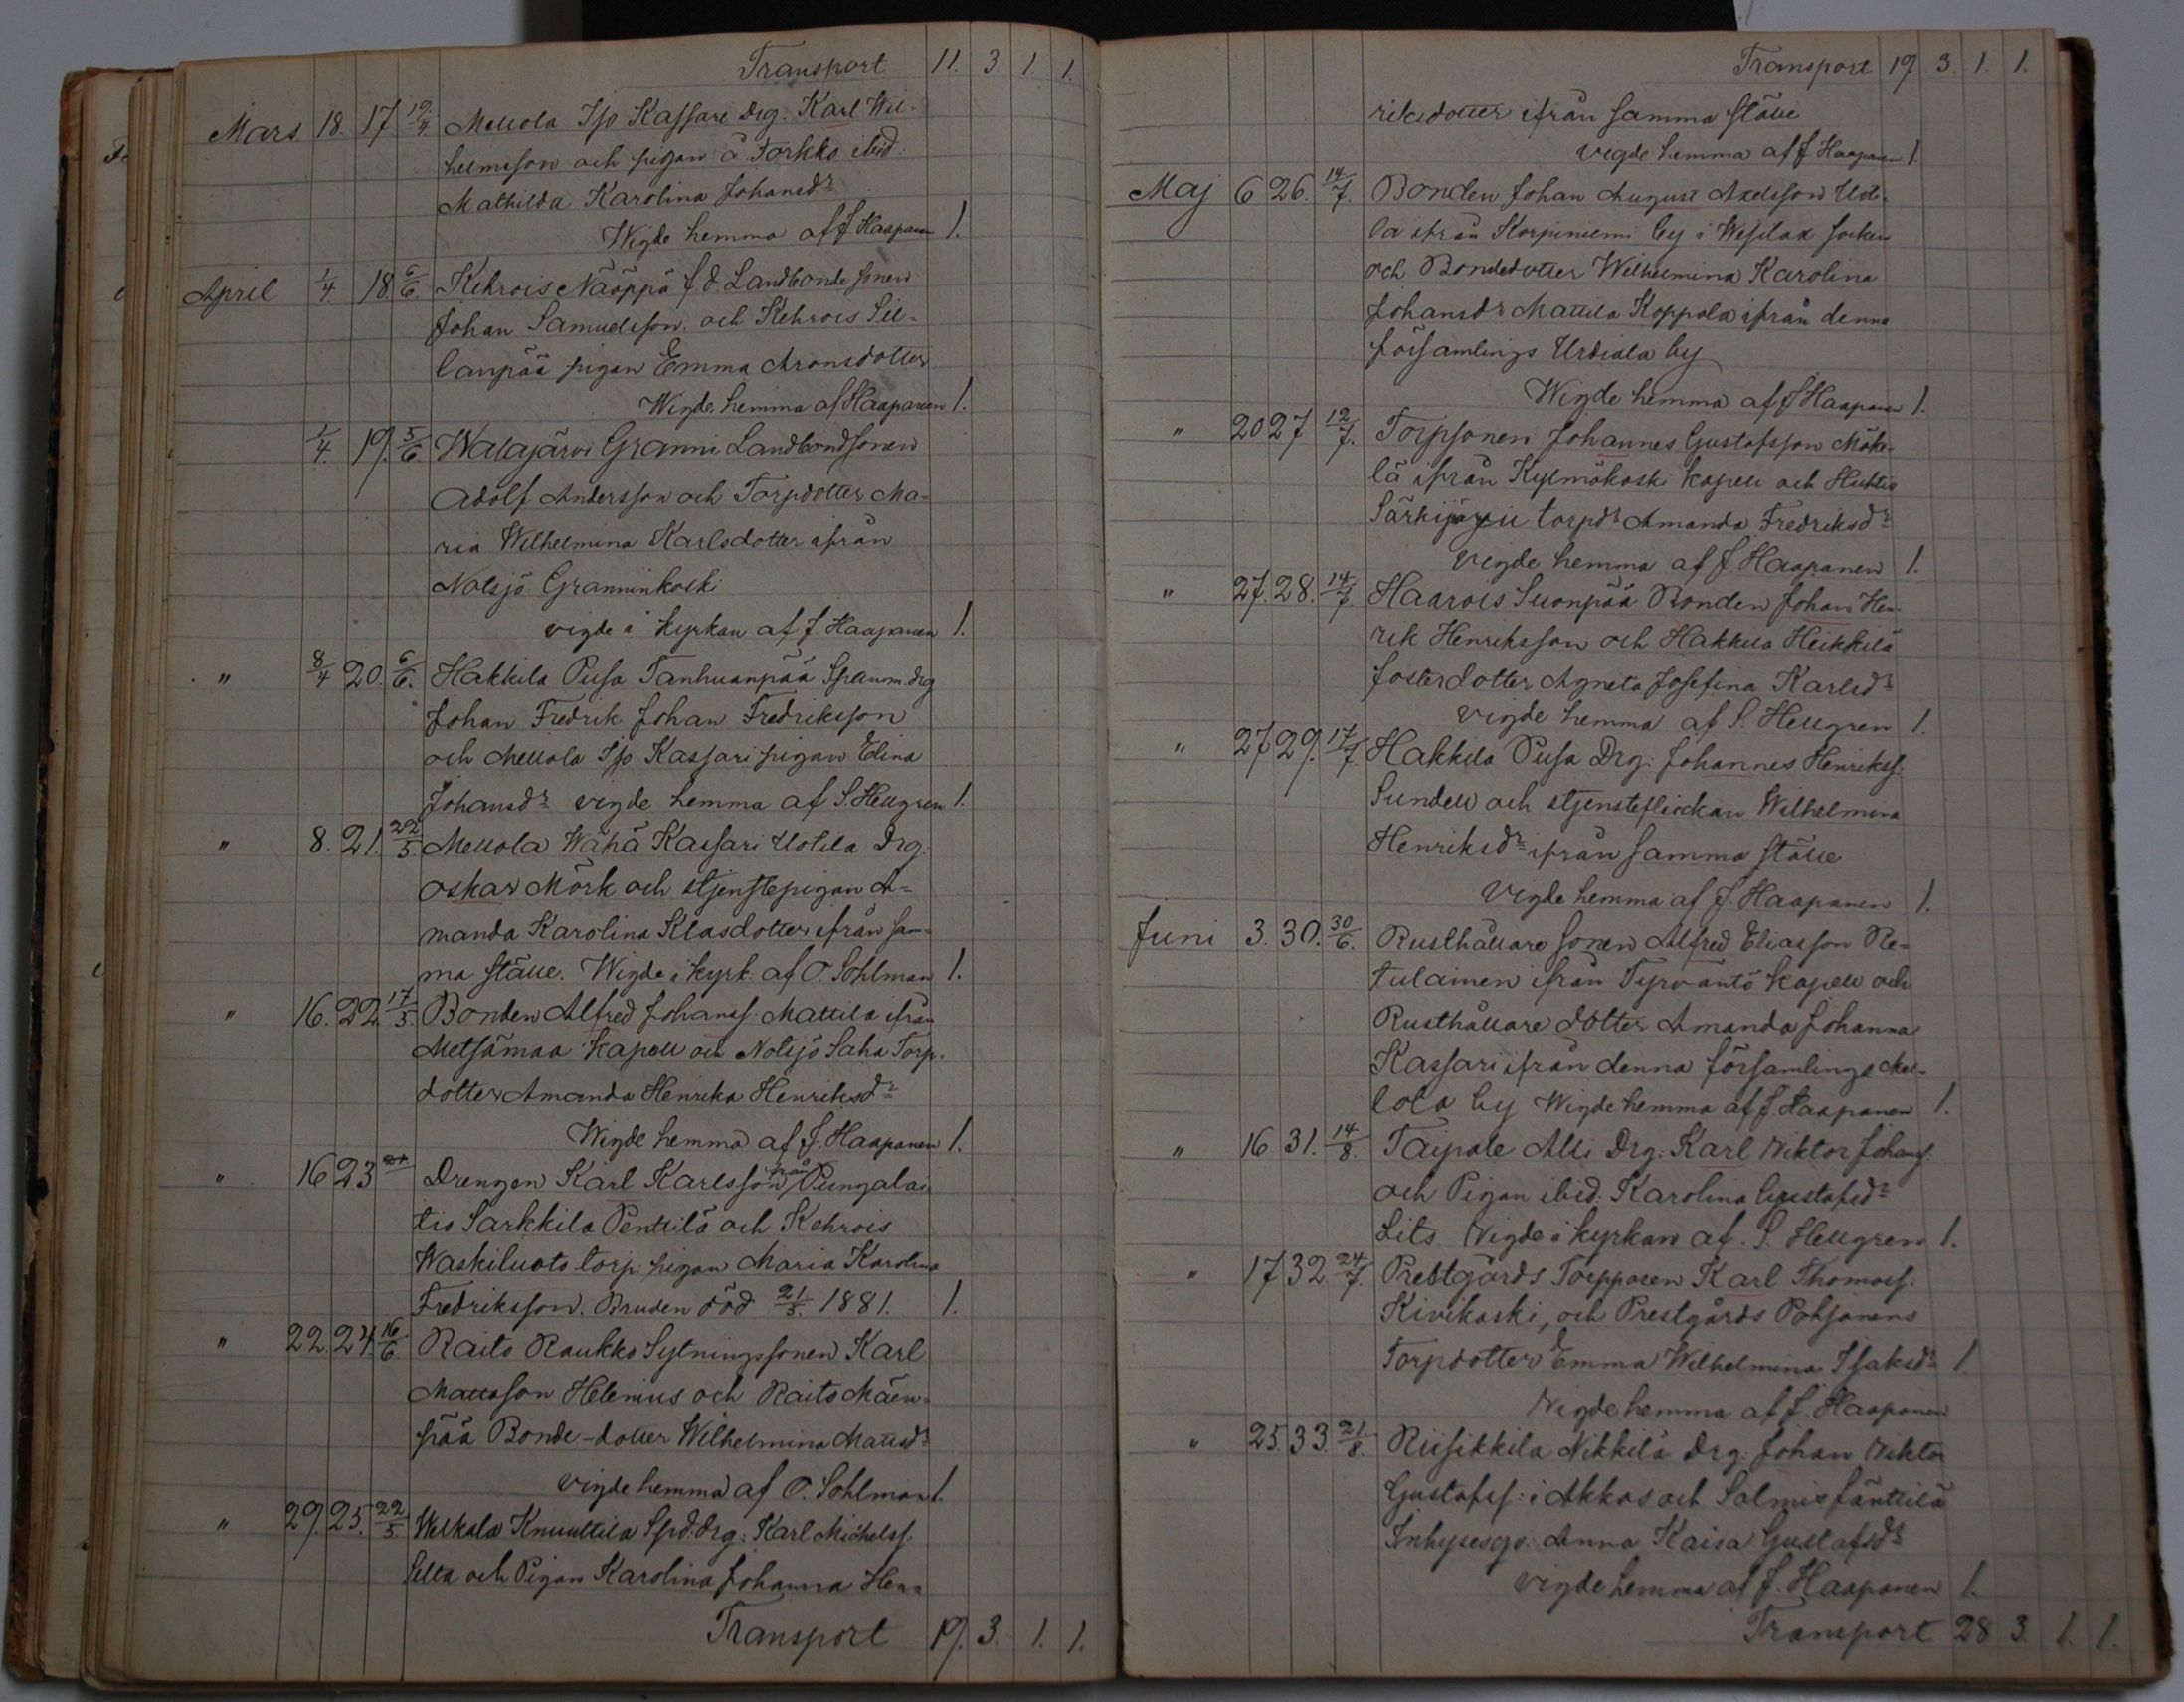 Transport 11. 3. 1. 1.
Mars. 18. 17 19/4 Mellola Iso Kassari Drg. Karl Wil-
helmsson och pigan å Torkko ibid.
Mathilda Karolina Johansdr
Wigde hemma af J Haapanen 1.
April 1/4 18. 6/6. Kehrois Näöppä f.d. Landbonde sonen
Johan Samuelsson. och Kehrois Sil-
lanpää pigan Emma Aronsdotter
Wigde hemma af Haapanen 1.
1/4. 19. 5/6. Walajärvi Granni Landbondsonen
Adolf Andersson och Torpdotter Ma-
ria Wilhelmina Karlsdotter ifrån
Notsjö Granninkoski
vigde i kyrkan af J. Haapanen 1.
" 8/4 20. 6/6. Hakkila Pusa Tanhuanpää Spanm. drg
Johan Fredrik Johan Fredriksson
och Mellola Iso Kassari pigan Elina
Johansdr vigde hemma af S. Hellgren 1.
" 8. 21. 22/5. Mellola Wähä Kassari Uotila Drg.
Oskar Mörk och stjenstepigan A-
manda Karolina Klasdotter ifrån sam-
ma ställe. Wigde i kyrk. af O. Sohlman 1.
" 16. 22. 17/5. Bonden Alfred Johanss: Mattila ifrån
Metsämaa kapell och Notsjö Saha Torp-
dotter Amanda Henrika Henriksdr
Wigde hemma af J. Haapanen 1.
" 16 23 Drengen Karl Karlsson från Pungalai-
tio Sarkkila Penttilä och Kehrois
Waskiluoto torp. pigan Maria Karolina
Fredriksson. Bruden död 21/5. 1881. 1.
" 22. 24. 16/6. Raito Raukko Sytningssonen Karl
Mattsson Helenius och Raito Mäen-
pää Bonde-dotter Wilhelmina Mattsdr
vigde hemma af O. Sohlman 1.
" 29. 25. 22/5. Welkala Knuuttila Spd. drg: Karl Michelss.
Sella och Pigan Karolina Johanna Hen-
Transport 19. 3. 1. 1.
Transport 19 3 1. 1.
riksdotter ifrån samma ställe
vigde hemma af J Haapanen 1.
Maj 6 26. 14/7. Bonden Johan August Axelsson Uoti-
la ifrån Korpiniemi by i Wesilax socken
och Bondedotter Wilhelmina Karolina
Johansdr Mattila Koppala ifrån denna
församlings Urdiala by
Wigde hemma af J Haapanen 1.
" 20 27 12/7. Torpsonen Johannes Gustafsson Mäke-
lä ifrån Kylmäkoski kapell och Huhtis
Särkijärvii torpdr Amanda Fredriksdr
vigde hemma af J. Haapanen 1.
" 27. 28. 14/7. Haarois Suonpää Bonden Johan Hen-
rik Henriksson och Hakkila Heikkilä
fosterdotter Agneta Josefina Karlsdr
vigde hemma af S. Hellgren 1.
" 27 29. 17/7. Hakkila Pusa Drg. Johannes Henrikss:
Sundell och stjensteflickan Wilhelmina
Henriksdr ifrån samma ställe
Vigde hemma af J. Haapanen 1.
Juni 3. 30. 30/6. Rusthållare sonen Alfred Eliasson Re-
tulainen ifrån Tyrväntö kapell och
Rusthållare dotter Amanda Johanna
Kassari ifrån denna församlings Mel-
lola by Wigde hemma af J. Haapanen 1.
" 16 31. 14/8. Taipale Alli Drg. Karl Wiktor Johanss.
och Pigan ibid. Karolina Gustafsdr
Lits. Wigde i kyrkan af. S. Hellgren 1.
" 17 32. 24/7. Prestgårds Torpparen Karl Thomass.
Kivikoski, och Prestgårds Pohjanens
Torpdotter Emma Wilhelmina Isaksdr 1.
Wigde hemma af J. Haapanen
" 25. 33. 21/8. Riisikkila Nikkilä Drg. Johan Wiktor
Gustafss: i Akkas och Salmis Jänttilä
Inhysesgo. Anna Kaisa Gustafsdr
vigde hemma af J. Haapanen 1.
Transport 28 3. 1. 1.